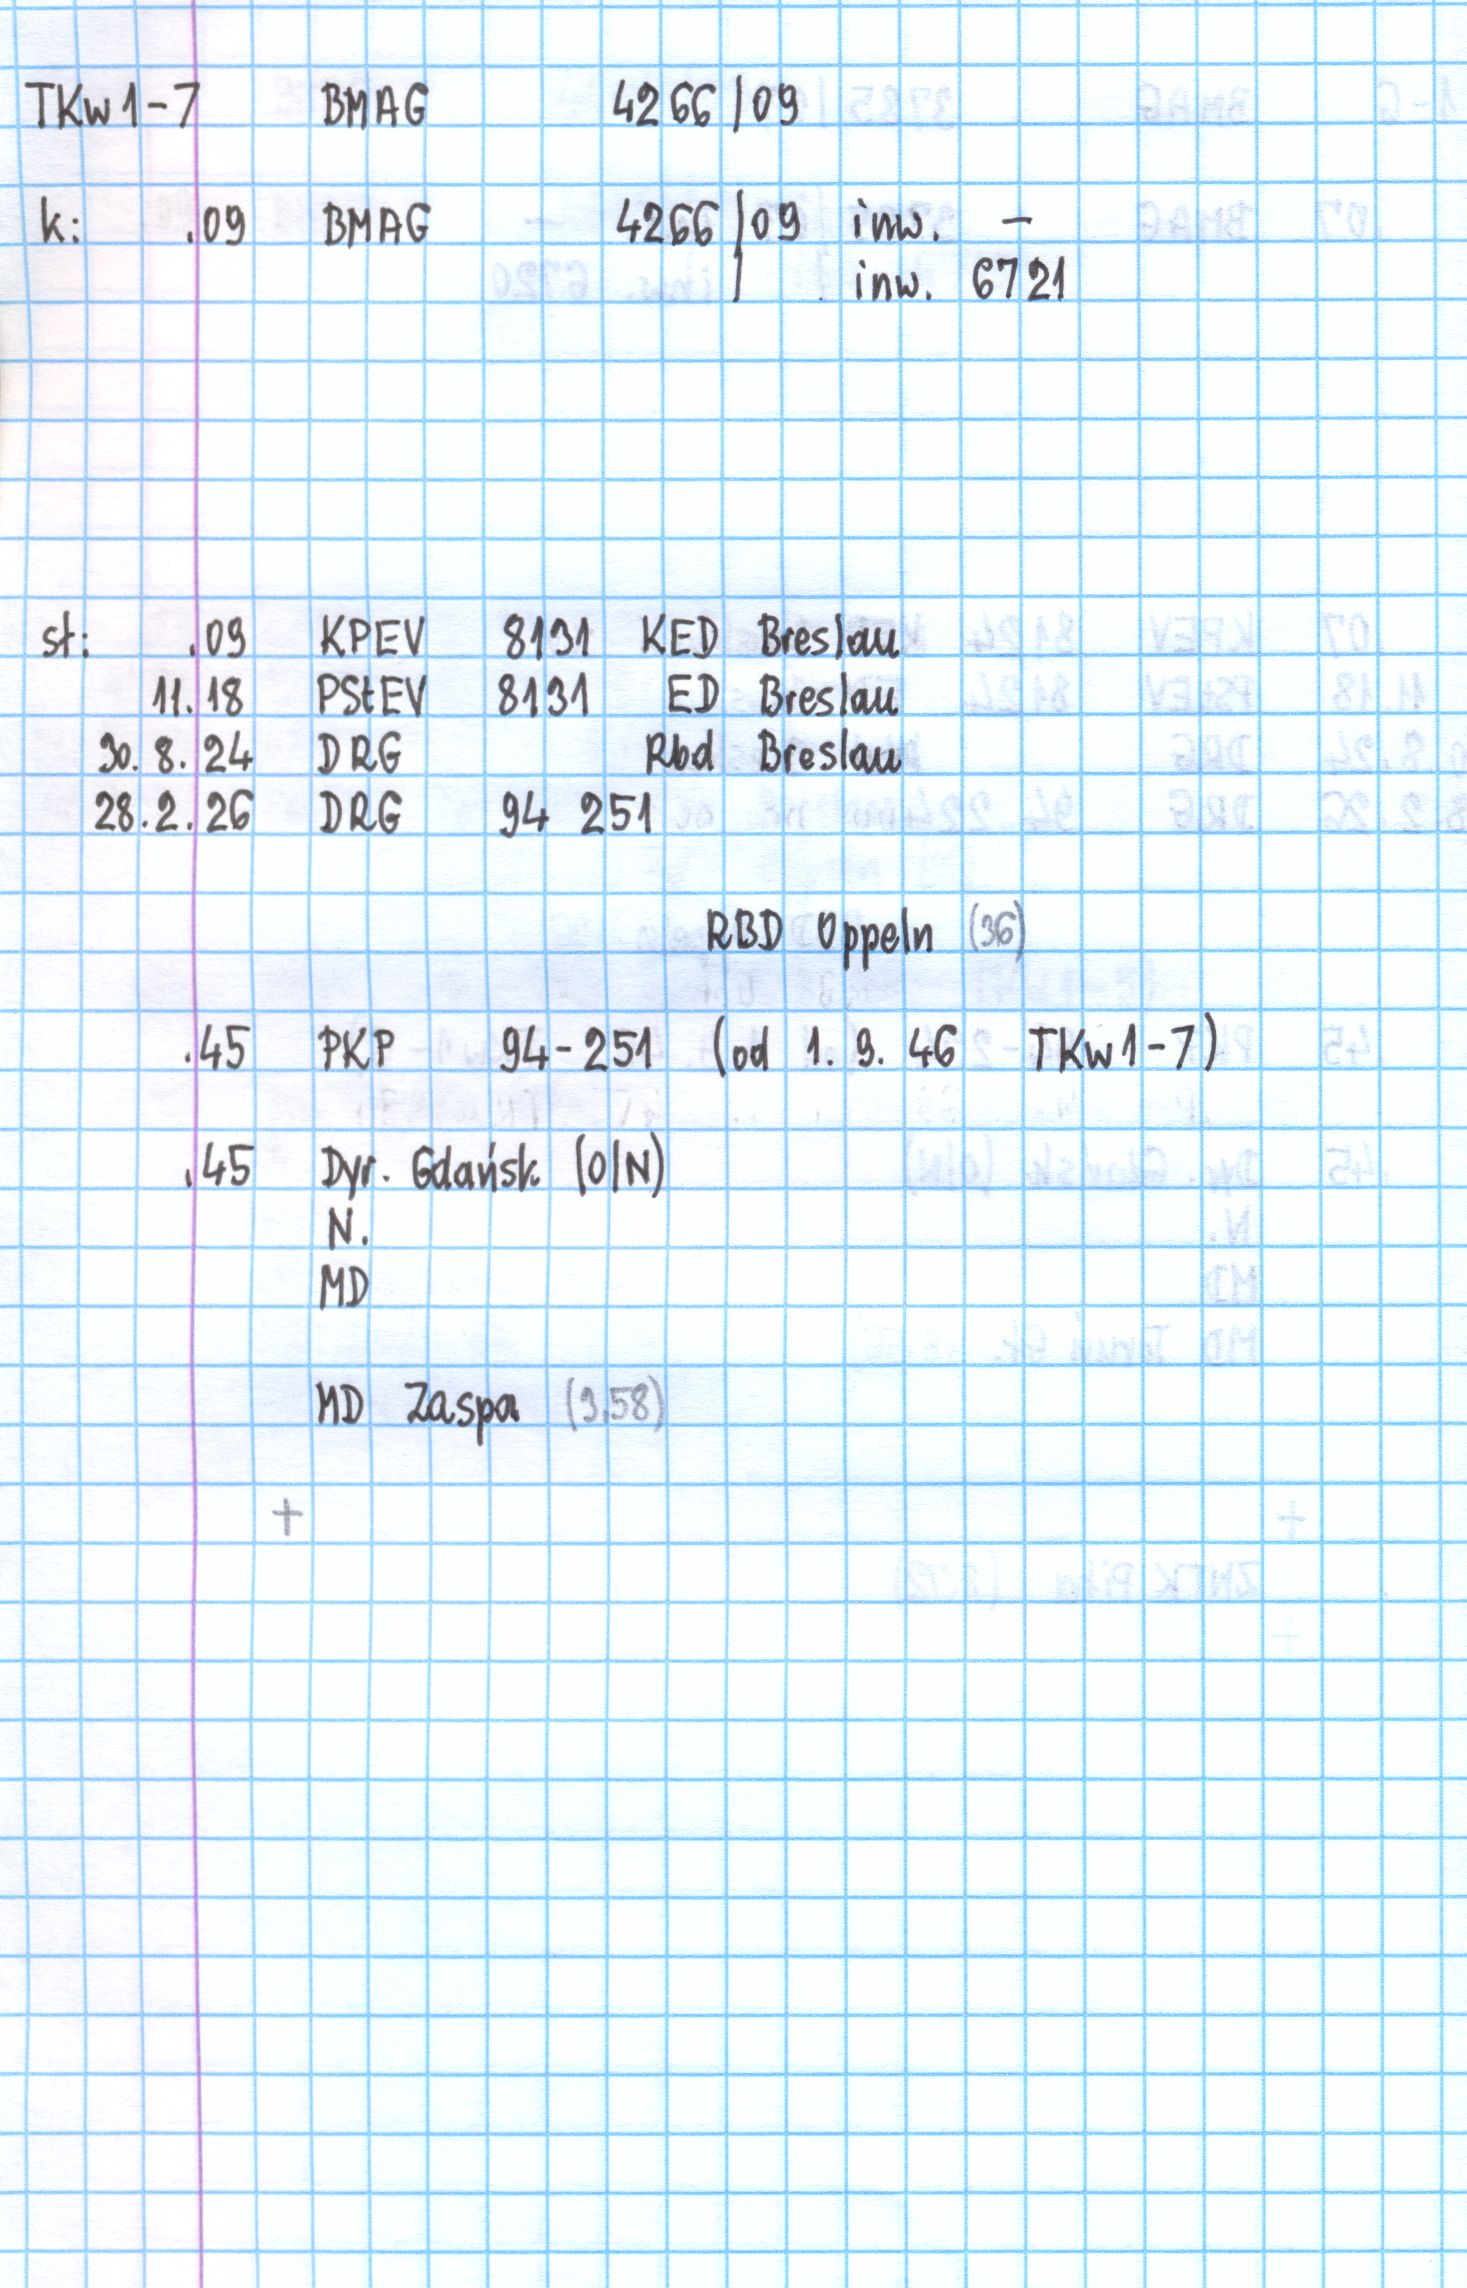 TKw1-7 BMAG 4266/09
k: .09 BMAG 4266/09 inw. –
/ inw. 6721
st: .09 KPEV 8131 KED Breslau
11.18 PStEV 8131 ED Breslau
30. 8. 24 DRG Rbd Breslau
28. 2. 26 DRG 94 251
RBD Oppeln (36)
.45 PKP 94-251 (od 1. 9. 46 TKw1-7)
.45 Dyr. Gdańsk (O/N)
N.
MD
MD Zaspa (9.58)
+